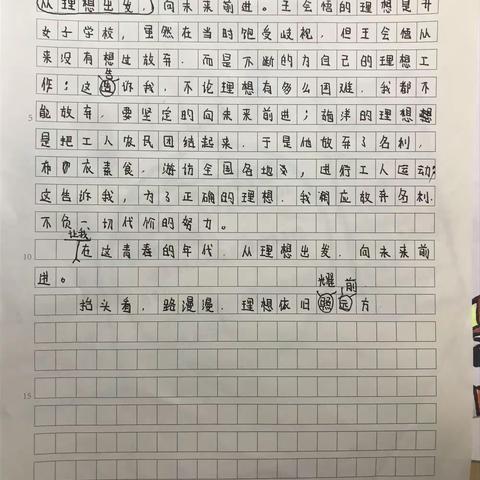 从理想出发，向未来前进。王会悟的理想是开
女子学校，虽然在当时饱受歧视，但王会悟从
来没有想过放弃，而是不断的为自己的理想工
作；这告诉我，不论理想有多么困难，我都不
能放弃，要坚定的向未来前进；施洋的理想
是把工人农民团结起来，于是他放弃了名利，
布衣素食，游访全国各地，进行工人运动，
这告诉我，为了正确的理想，我都应放弃名利，
不负一切代价的努力。
让我在这青春的年代，从理想出发，向未来前
进。
抬头看，路漫漫，理想依旧耀前方
5
10
15